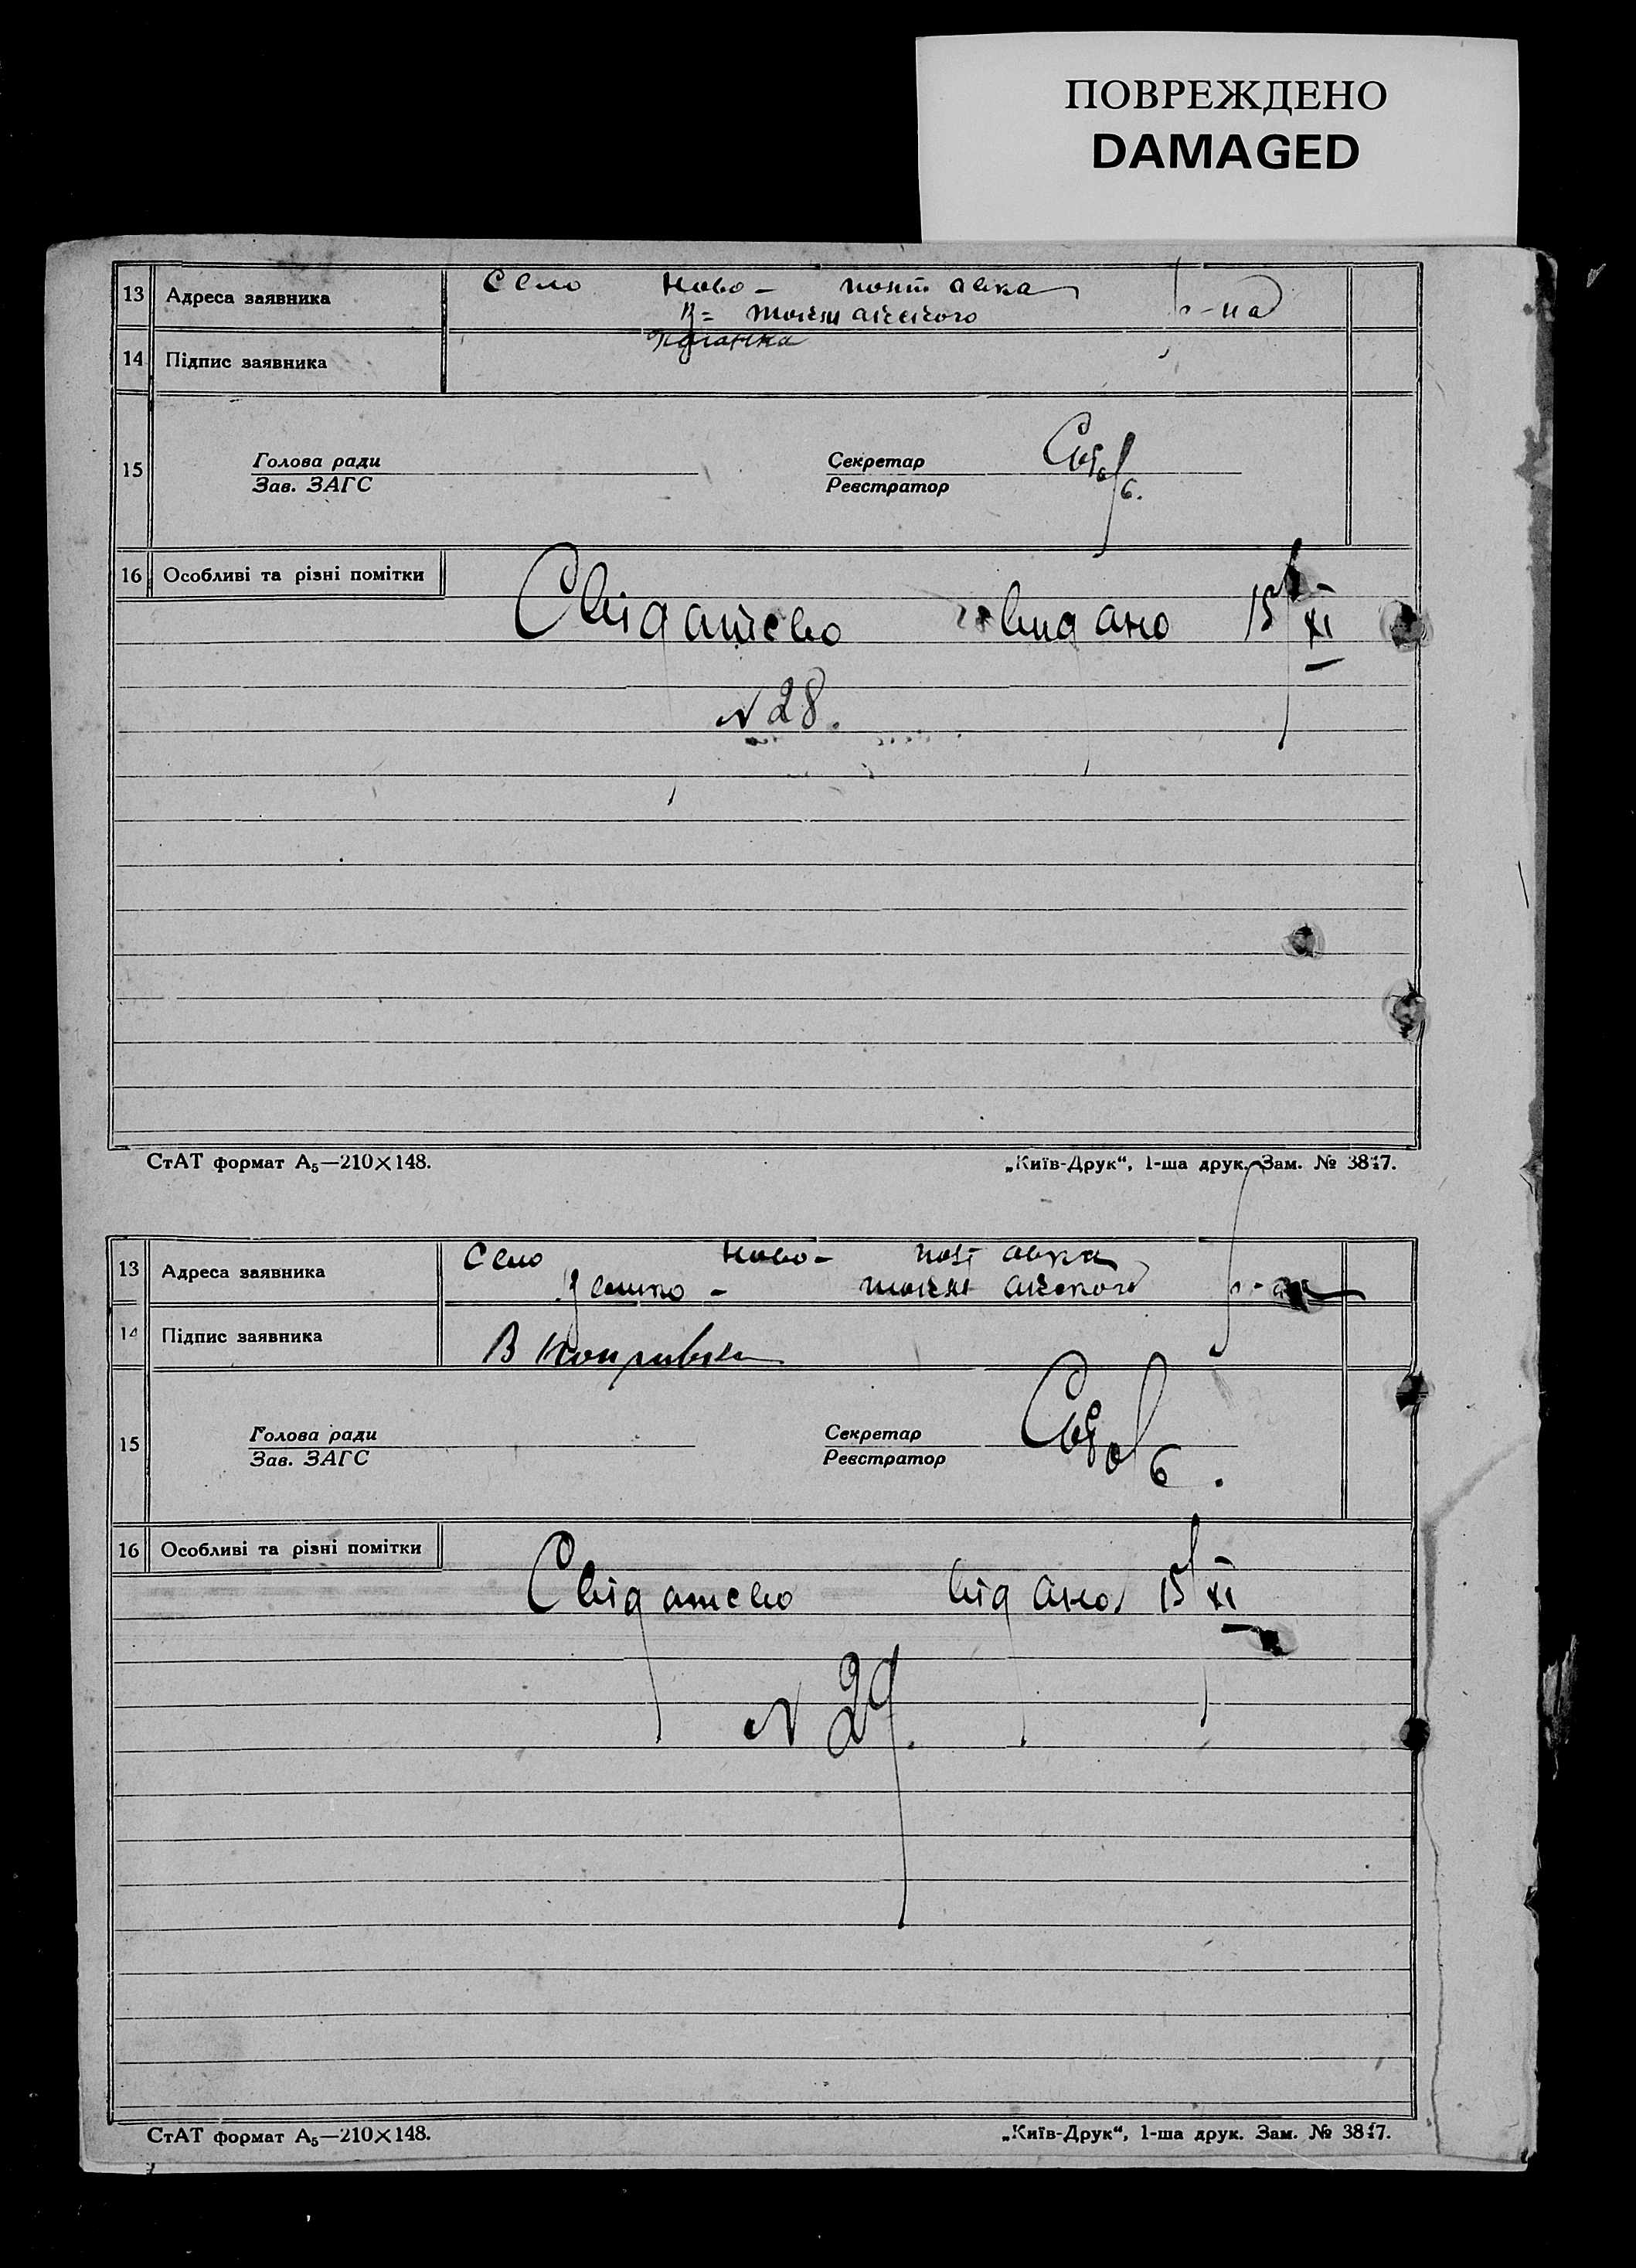 ПОВРЕЖДЕНО
DAMAGED
13 Адреса заявника Село Ново-
р-на
14 Підпис заявника
15 Голова ради Секретар
Зав. ЗАГС Реєстратор
16 Особливі та різні помітки
Свідатсво видано 15/XI
N 28.
СтАТ формат А5—210×148. „Київ-Друк“, 1-ша друк. Зам. № 3817.
13 Адреса заявника Село Ново-
14 Підпис заявника В
15 Голова ради Секретар
Зав. ЗАГС Реєстратор
16 Особливі та різні помітки
Свідатсво відано 15/XI
N 29.
СтАТ формат А5—210×148. „Київ-Друк“, 1-ша друк. Зам. № 3817.